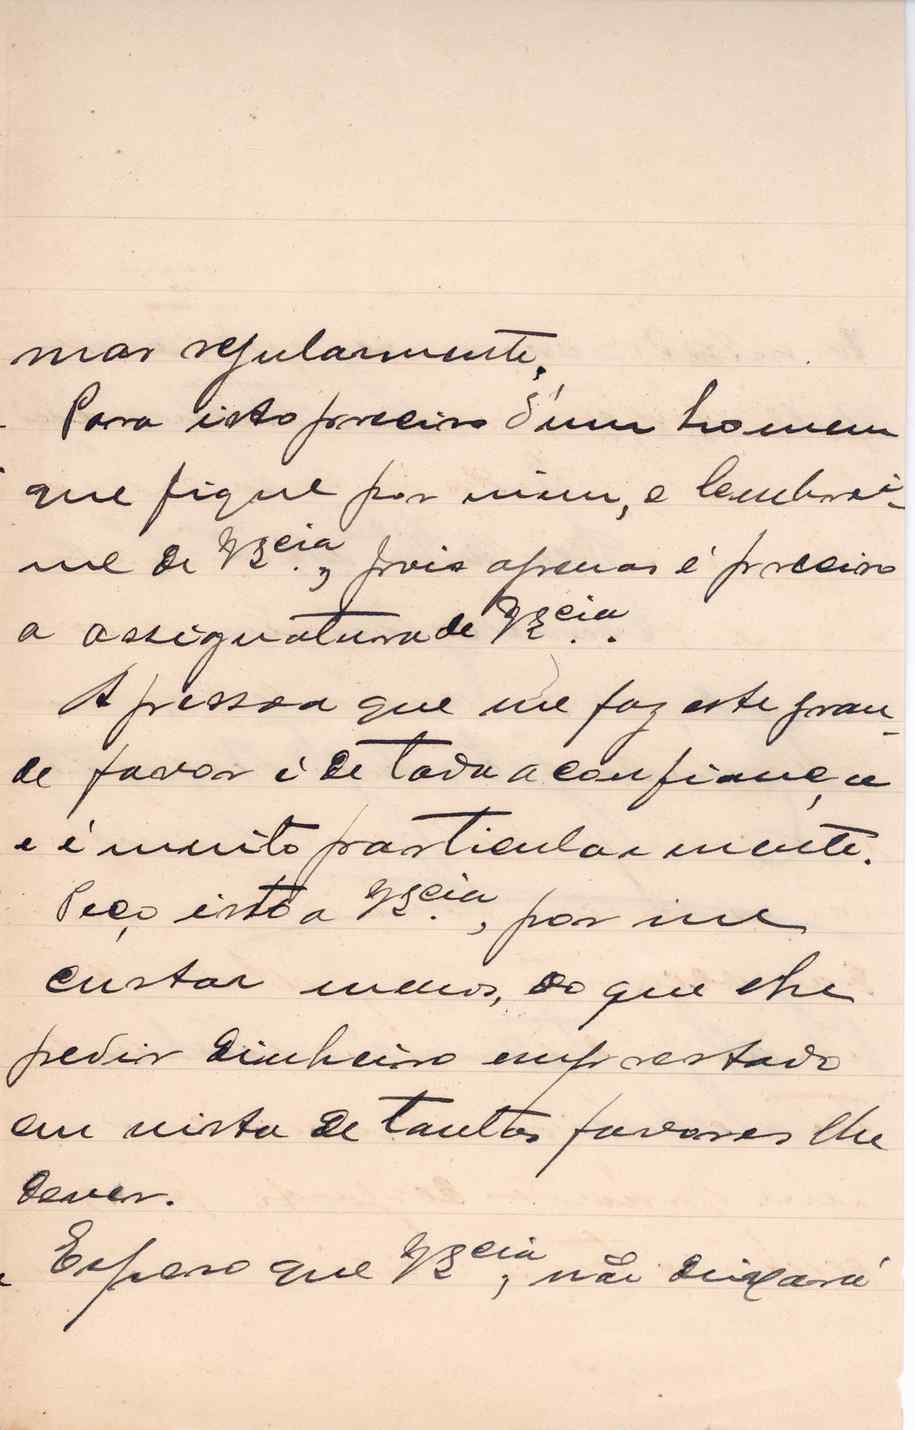 mar regularmente.
Para isto preciso d'um homem
que fique por mim, e lembrei-
me de V. Ex.cia, pois apenas é preciso
a assignatura de V. Ex.cia.
A pessoa que me faz este gran-
de favor é de toda a confiança
e é muito particularmente.
Peço isto a V. Ex.cia, por me
custar menos, do que lhe
pedir dinheiro emprestado
em vista de tantos favores lhe
dever.
Espero que V. Ex.cia, não deixará